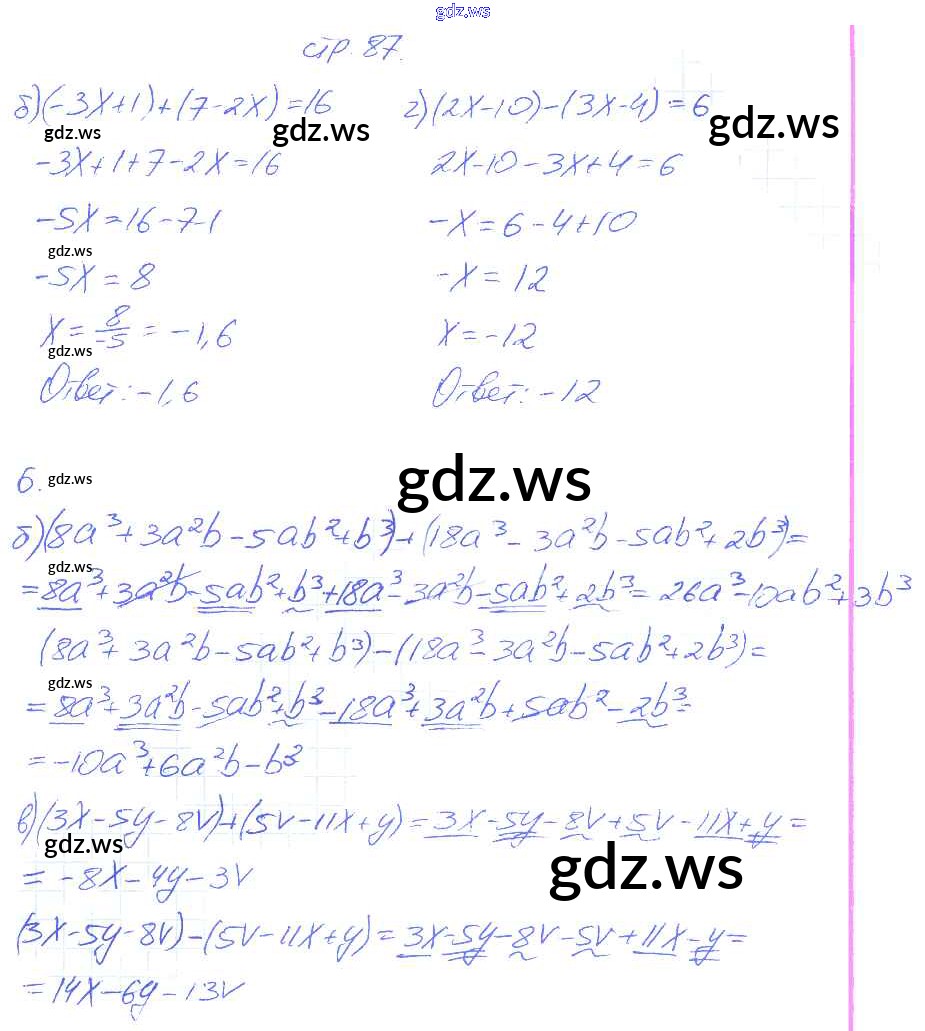 gdz.ws
стр. 87.
б) (-3x+1)+(7-2x)=16
gdz.ws gdz.ws
-3x+1+7-2x=16
-5x=16-7-1
gdz.ws
-5x=8
x=8/-5=-1,6
gdz.ws
Ответ: -1,6
г) (2x-10)-(3x-4)=6
gdz.ws
2x-10-3x+4=6
-x=6-4+10
-x=12
x=-12
Ответ: -12
6. gdz.ws
gdz.ws
б) (8a³+3a²b-5ab²+b³)+(18a³-3a²b-5ab²+2b³)=
gdz.ws
=8a³+3a²b-5ab²+b³+18a³-3a²b-5ab²+2b³=26a³-10ab²+3b³
(8a³+3a²b-5ab²+b³)-(18a³-3a²b-5ab²+2b³)=
gdz.ws
=8a³+3a²b-5ab²+b³-18a³+3a²b+5ab²-2b³=
=-10a³+6a²b-b³
в) (3x-5y-8v)+(5v-11x+y)=3x-5y-8v+5v-11x+y=
gdz.ws gdz.ws
=-8x-4y-3v
(3x-5y-8v)-(5v-11x+y)=3x-5y-8v-5v+11x-y=
=14x-6y-13v